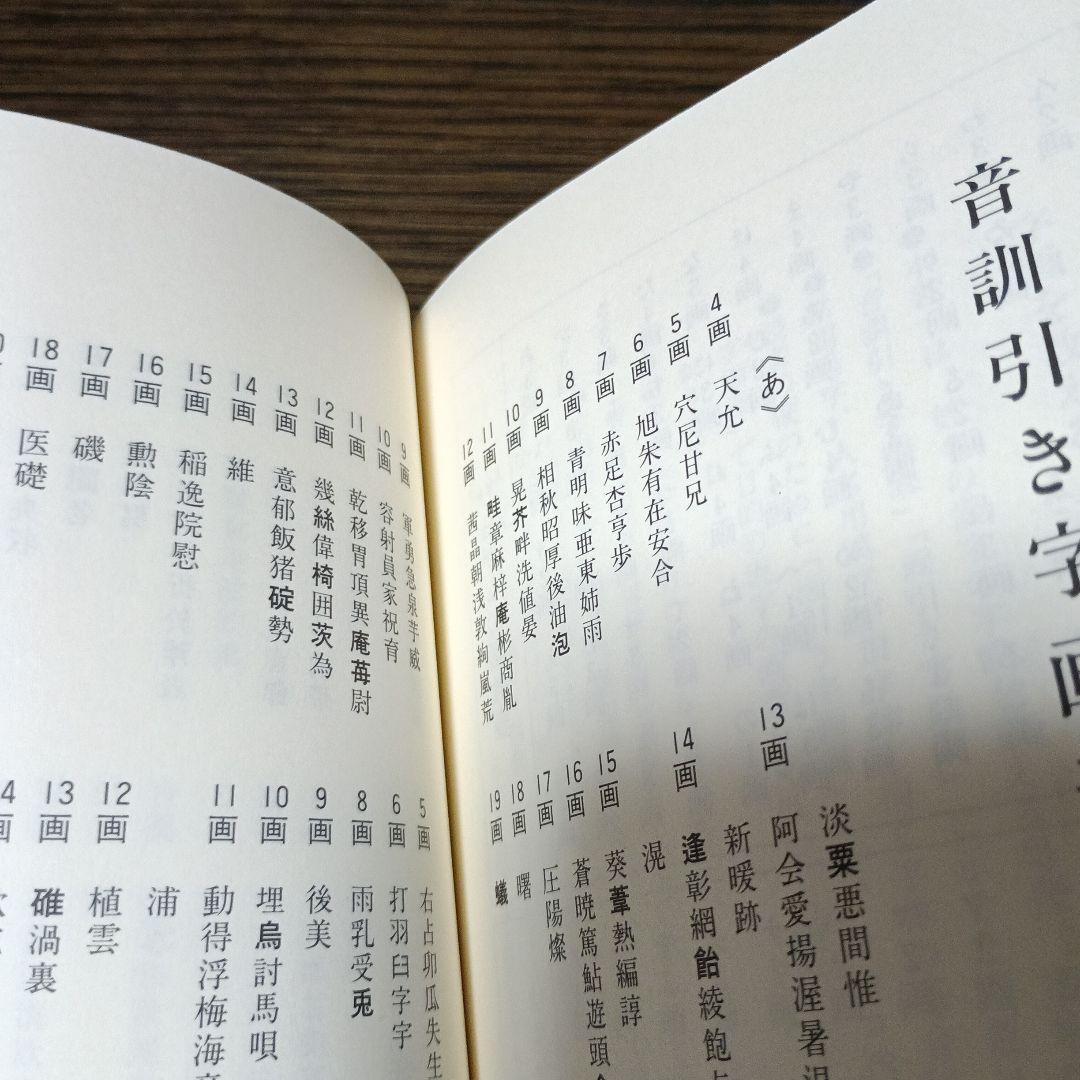 音訓引き字画
《あ》
4画 天允
5画 穴尼甘兄
6画 旭朱有在安合
7画 赤足杏亨歩
8画 青明味亜東姉雨
9画 相秋昭厚後油泡
10画 晃芥畔洗値晏
11画 畦章麻梓庵彬商胤
12画 茜晶朝浅敦絢嵐荒
淡粟悪間惟
13画 阿会愛揚渥暑
新暖跡
14画 逢彰網飴綾飽
滉
15画 葵葦熱編諄
16画 蒼暁篤鮎遊頭
17画 圧陽燦
18画 曙
19画 蟻
9画 軍勇急泉芋威
10画 容射員家祝育
11画 乾移胃頂異庵苺尉
12画 幾絲偉椅囲茨為
13画 意郁飯猪碇勢
14画 維
15画 稲逸院慰
16画 勲陰
17画 磯
18画 医礎
5画 右占卯瓜失生
6画 打羽臼字宇
8画 雨乳受兎
9画 後美
10画 埋烏討馬唄
11画 動得浮梅海
浦
12画 植雲
13画 碓渦裏